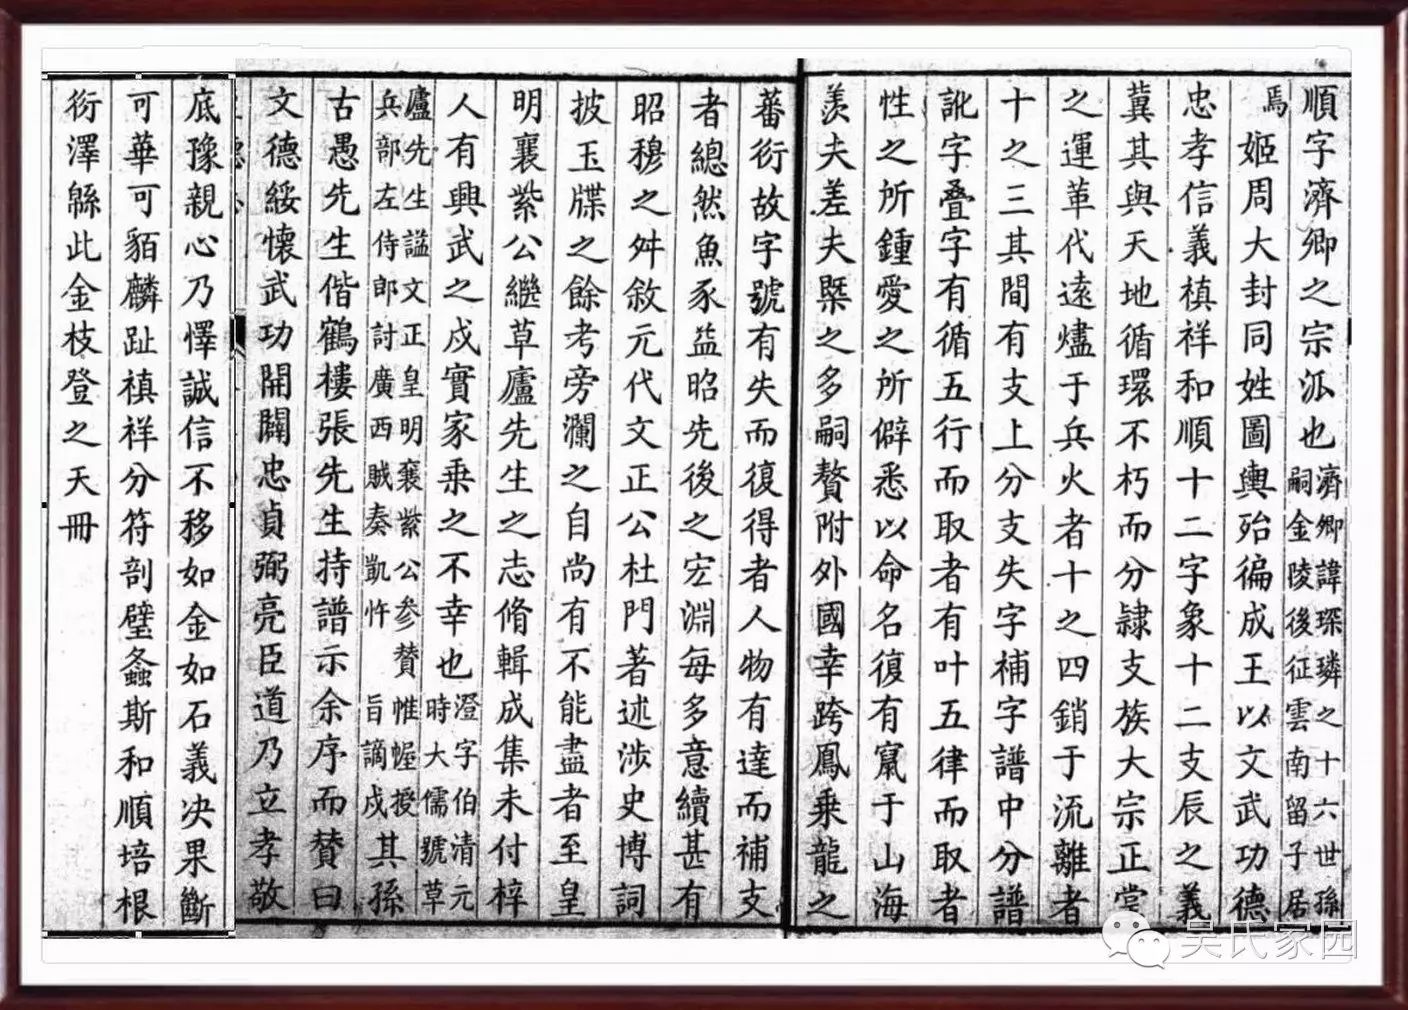 順字濟卿之宗派也濟卿諱琛璘之十六世孫嗣金陵後征雲南留子居
焉姬周大封同姓圖輿殆徧成王以文武功德
忠孝信義禎祥和順十二字象十二支辰之義
冀其與天地循環不朽而分隷支族大宗正嘗
之運革代遠燼于兵火者十之四銷于流離者
十之三其間有支上分支失字補字譜中分譜
訛字叠字有循五行而取者有叶五律而取者
性之所鍾愛之所僻悉以命名復有竄于山海
羨夫差夫槩之多嗣贅附外國幸跨鳳乗龍之
蕃衍故字號有失而復得者人物有達而補支
者總然魚豕益昭先後之宏淵每多意續甚有
昭穆之舛敘元代文正公杜門著述涉史博詞
披玉牒之餘考旁瀾之自尚有不能盡者至皇
明襄紫公繼草廬先生之志脩輯成集未付梓
人有興武之戍實家乗之不幸也澄字伯清元時大儒號草
廬先生謚文正皇明襄紫公参賛帷幄授兵部左侍郎討廣西賊奏凱忤旨謫戍其孫
古愚先生偕鶴樓張先生持譜示余序而賛曰
文德綏懷武功開闢忠貞弼亮臣道乃立孝敬
底豫親心乃懌誠信不移如金如石義决果斷
可華可貊麟趾禎祥分符剖璧螽斯和順培根
衍澤緜此金枝登之天冊
吴氏家园